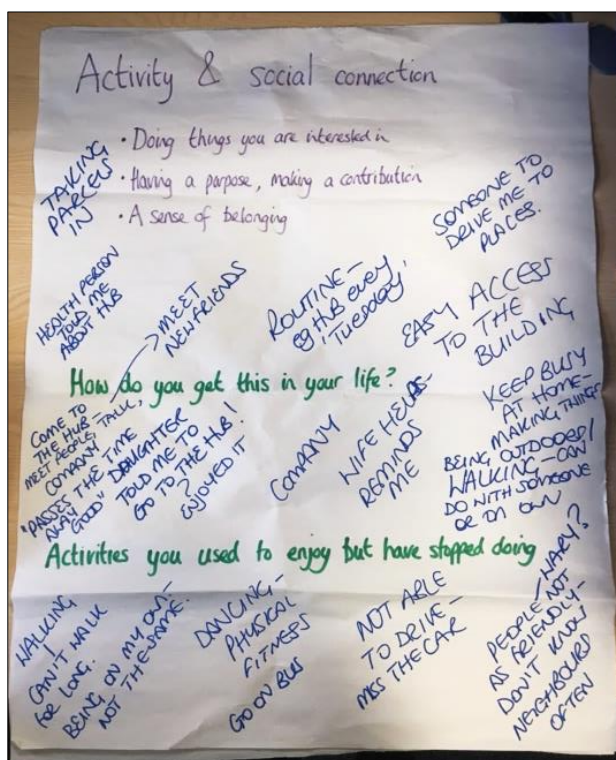 Activity & social connection
• Doing things you are interested in
• Having a purpose, making a contribution
• A sense of belonging
TAKING
PARCELS
IN
SOMEONE TO
DRIVE ME TO
PLACES.
HEALTH PERSON
TOLD ME
ABOUT HUB
→ MEET
NEW FRIENDS
ROUTINE –
eg HUB every
'Tuesday'
EASY ACCESS
TO THE
BUILDING
How do you get this in your life?
COME TO
THE HUB –
MEET PEOPLE, TALK,
COMPANY
"PASSES THE TIME
AWAY GOOD"
DAUGHTER
TOLD ME TO
GO TO THE HUB!
?
ENJOYED IT
COMPANY
WIFE HELPS –
REMINDS
ME
KEEP BUSY
AT HOME –
MAKING THINGS
BEING OUTDOORS/
WALKING – CAN
DO WITH SOMEONE
OR ON OWN
Activities you used to enjoy but have stopped doing
WALKING
CAN'T WALK
FOR LONG.
BEING ON MY OWN –
NOT THE SAME.
DANCING –
PHYSICAL
FITNESS
GO ON BUS
NOT ABLE
TO DRIVE –
MISS THE CAR
PEOPLE – WARY?
NOT
AS FRIENDLY –
DON'T KNOW
NEIGHBOURS
OFTEN